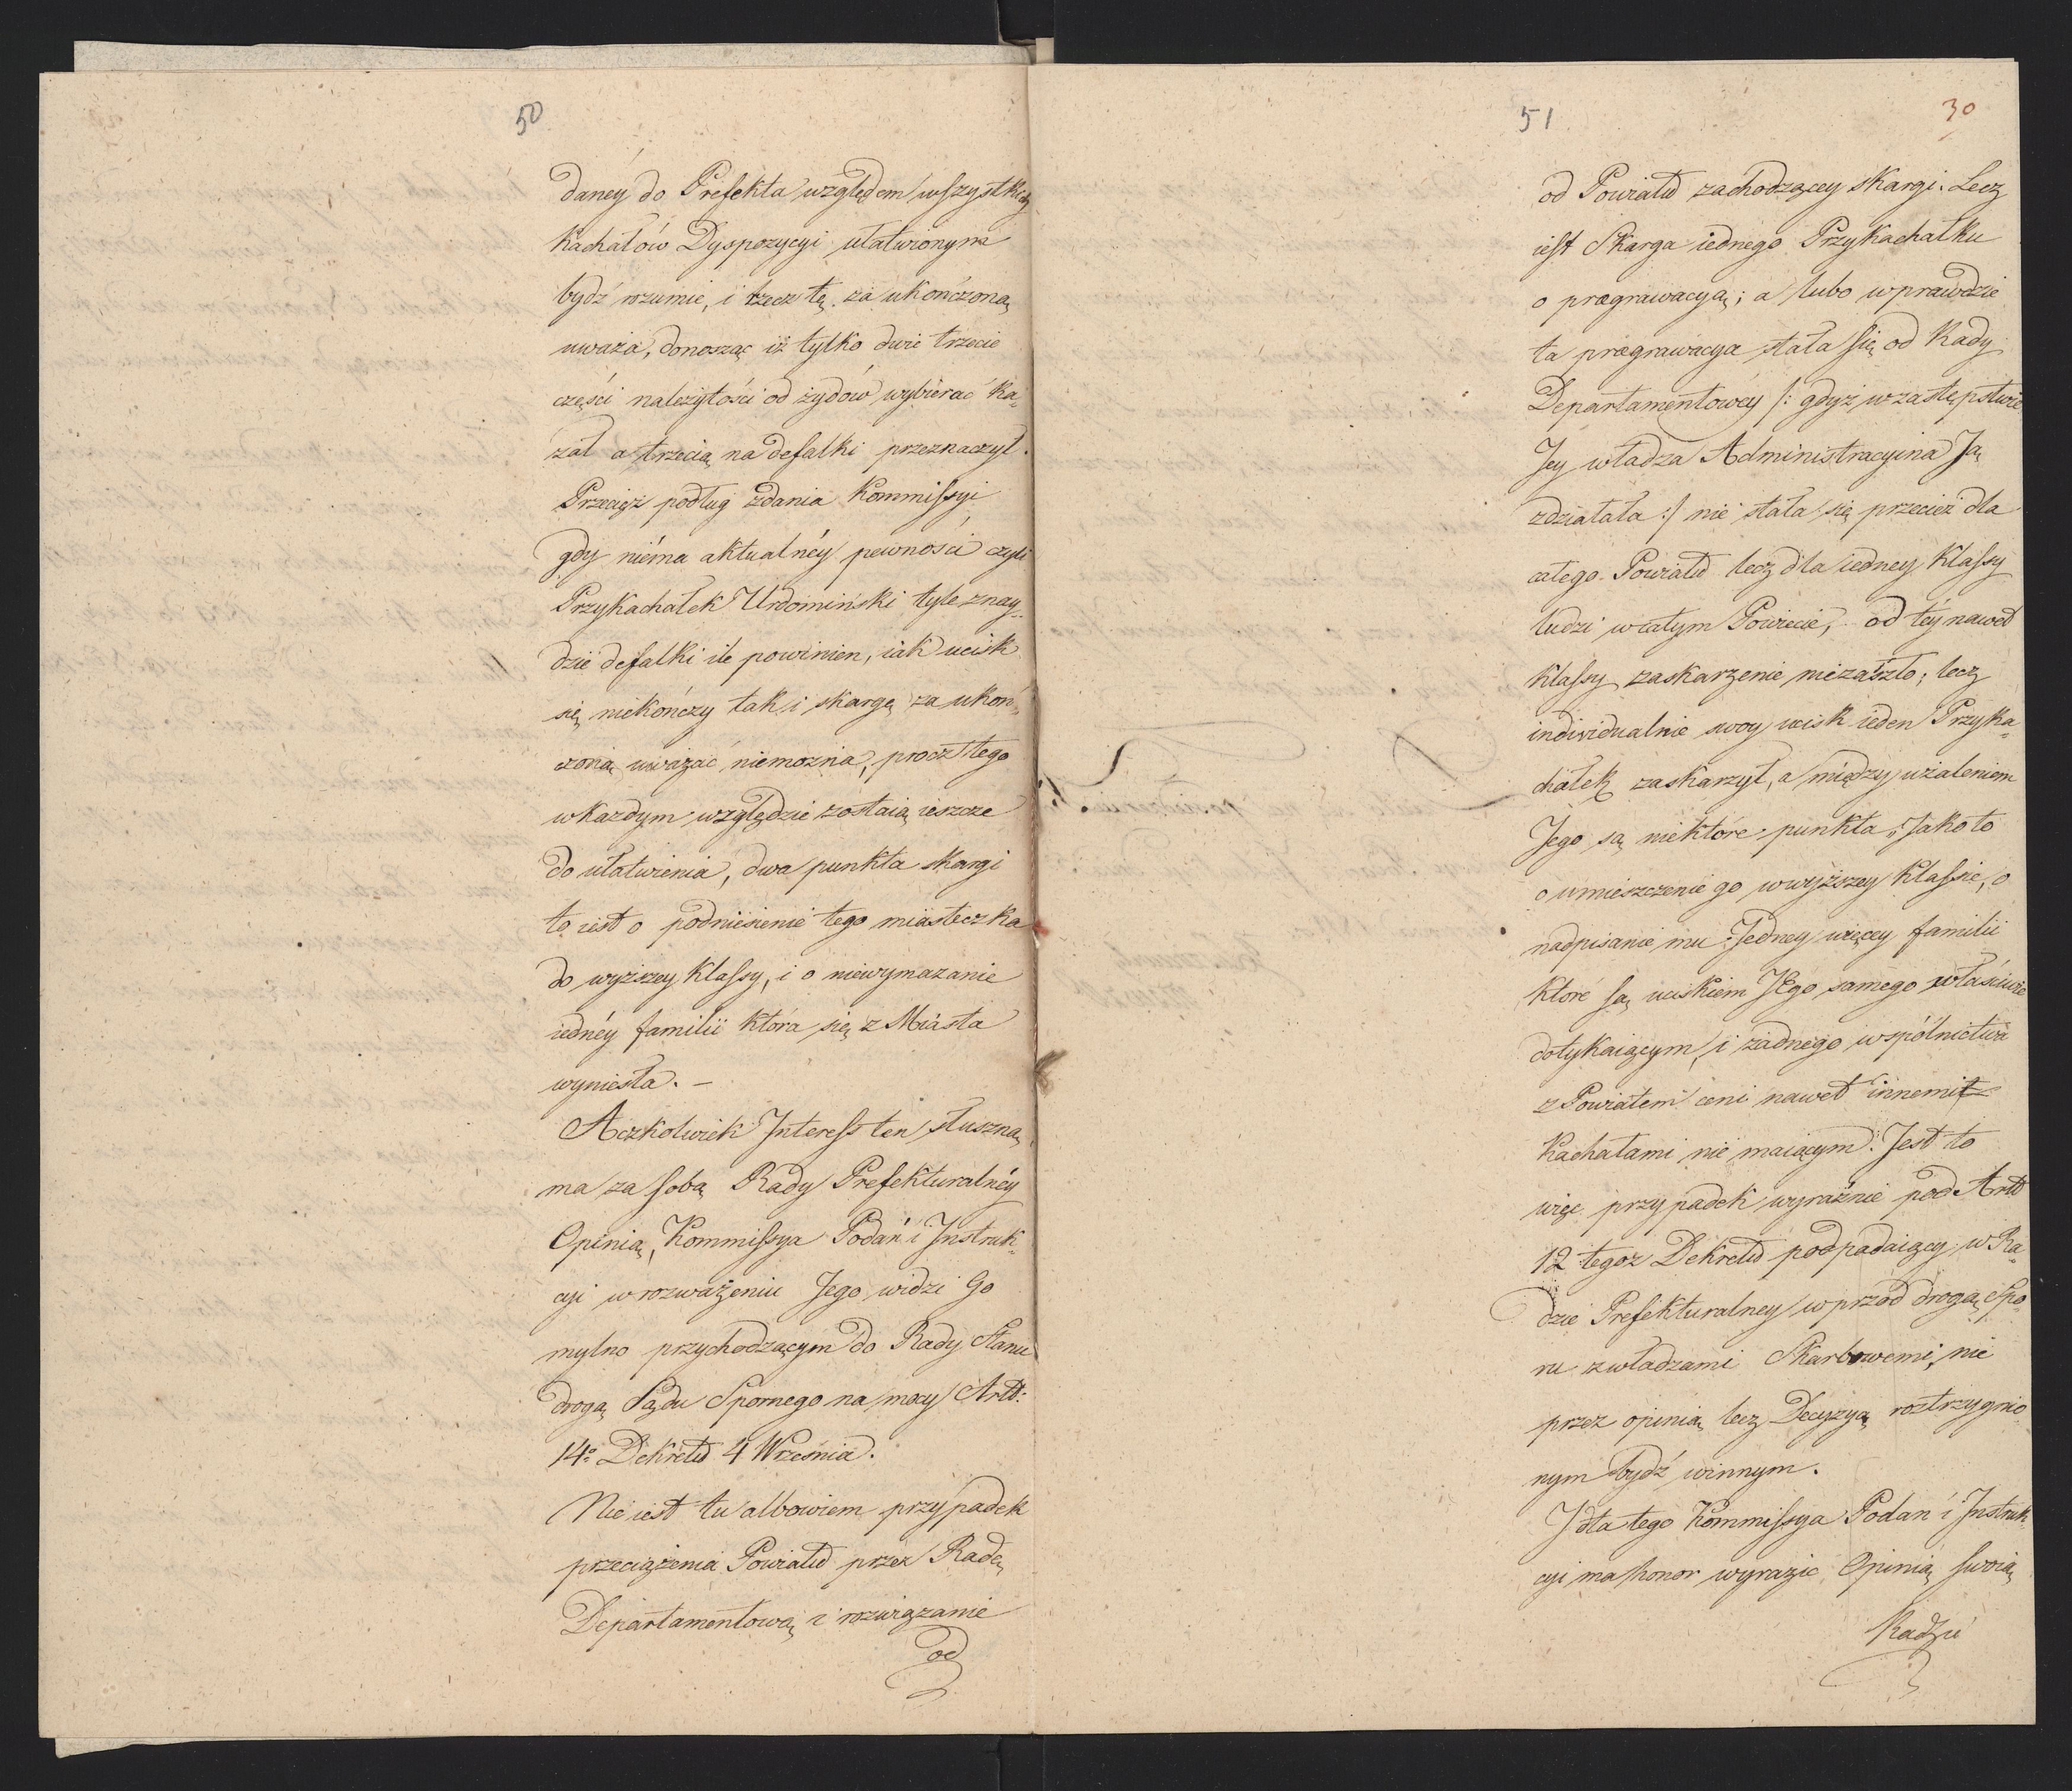 50
daney do Prefekta względem wszystkich
Kachałów Dyspozycyi ułatwionym
bydź rozumie, i rzecz tę za ukończoną
uważa, donosząc iż tylko dwie trzecie
części należytości od żydów wybierać ka-
zał a trzecią na defalki przeznaczył.
Przecięż podług zdania Kommissyi
gdy niéma aktualnéy pewności czyli
Przykachałek Urdomiński tyle znay-
dzie defalki ile powinien, iak ucisk
się niekończy tak i skargę za ukoń-
czoną uważać niemożna, procz tego
w każdym względzie zostaią ieszcze
do ułatwienia, dwa punkta skargi
to iest o podniesienie tego miasteczka
do wyższey Klassy, i o niewymazanie
iednéy familii która się z Miasta
wyniesła. –
Aczkolwiek Interess ten słuszną
ma za sobą Rady Prefekturalnéy
Opinią, Kommissya Podań i Instruk-
cyi w rozważeniu Jego widzi Go
mylno przychodzącym do Rady Stanu
drogą Sądu Spornego na mocy Artt:
14º Dekretu 4 Września.
Nie iest tu albowiem przypadek
przeciążenia Powiatu przez Radę
Departamentową i rozwiązanie
od
51
30
od Powiatu zachodzącey skargi. Lecz
iest Skarga iednego Przykachałku
o pragrawacyą; a lubo wprawdzie
ta pragrawacya stała się od Rady
Departamentowéy /: gdyż w zastępstwie
Jey władza Administracyina Ją
zdziałała :/ nie stała się przecież dla
całego Powiatu lecz dla iedney Klassy
ludzi w całym Powiecie, od téy nawet
Klassy zaskarżenie niezaszło; lecz
individualnie swoy ucisk ieden Przyka-
chałek zaskarzył, a między użaleniem
Jego są niektóre punkta, Jako to
o umieszczenie go w wyższey Klassie, o
nadpisanie mu Jedney więcey familii
które są uciskiem Jego samego właściwie
dotykaiącym, i żadnego wspólnictwa
z Powiatem ani nawet innemi
Kachałami nie maiącym. Jest to
więc przypadek wyraźnie pod Artt
12 tegoz Dekretu podpadaiący w Ra-
dzie Prefekturalney w przód drogą Spo-
ru z władzami Skarbowemi, nie
przez opinią lecz Decyzyą roztrzygnio-
nym bydź winnym.
I dla tego Kommissya Podan i Instruk-
cyi ma honor wyrazic Opinią swoią